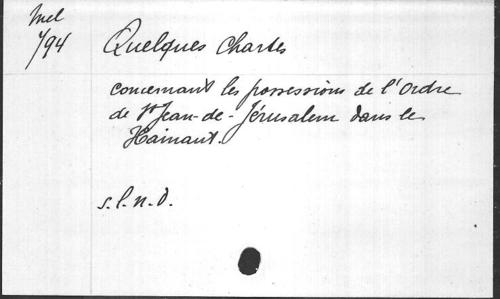 Mel
794
Quelques chartes
concernant les possessions de l'Ordre
de St Jean-de-Jérusalem dans le
Hainaut.
s.l.n.d.